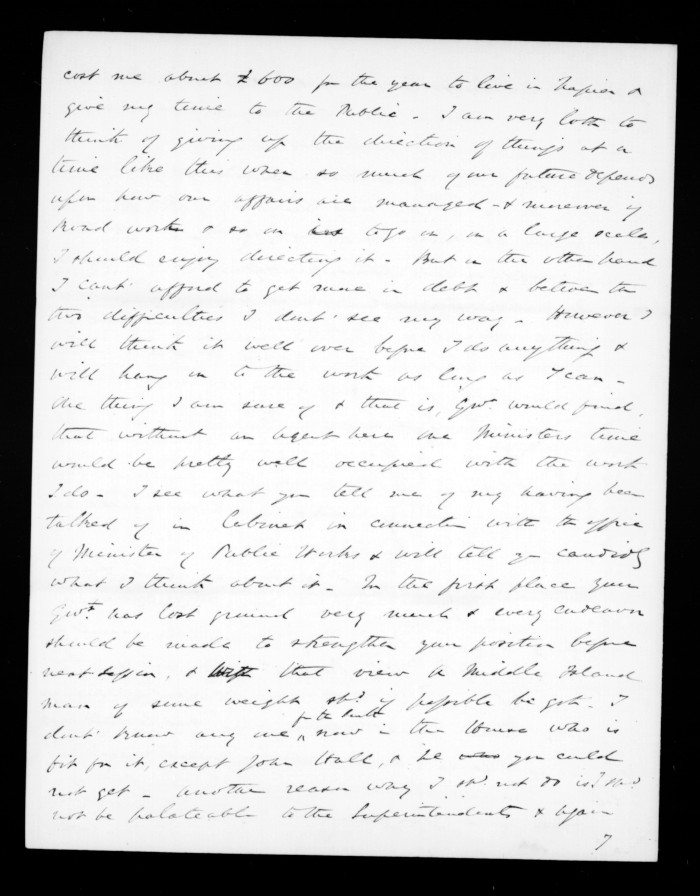 cost me about £600 for the year to live in Napier &
give my time to the Public - I am very loth to
think of giving up the direction of things at a
time like this when so much of our future depends
upon how our affairs are managed - & moreover if
Road works & so on to go on, on a large scale,
I should enjoy directing it - But on the other hand
I cant afford to get more in debt & between the
two difficulties I dont see my way - However I
will think it well over before I do anything &
will hang on to the work as long as I can -
One thing I am sure of & that is, Gov.t would find,
that without an Agent here one Ministers time
would be pretty well occupied with the work
I do - I see what you tell me of my having been
talked of in Cabinet in connection with the office
of Minister of Public Works & will tell you candidly
what I think about it - In the first place your
Gov.t has lost ground very much & every endeavor
should be made to strengthen your position before
next session, & with that view a Middle Island
man of some weight sh.d if possible be got - I
dont know any one now in the House who is
fit for it, except John Hall, & he you could
not get - Another reason why I sh.d not do is I sh.d
not be palateable to the Superintendents & again
7